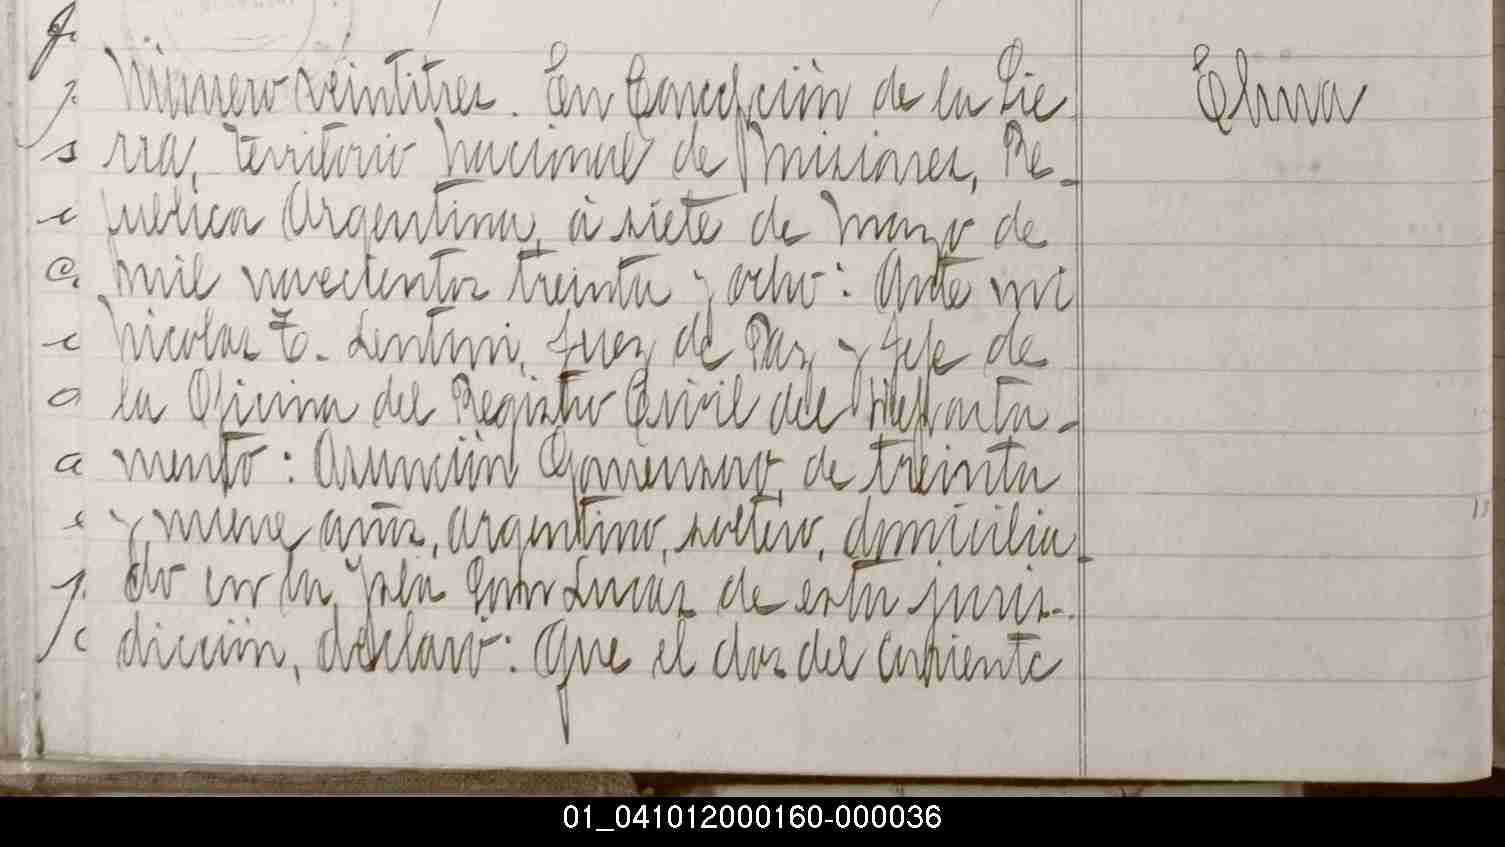 Número veintitres. En Concepción de la Sie
Elina
rra, territorio nacional de Misiones, Re_
pública Argentina, á siete de Marzo de
mil novecientos treinta y ocho: Ante mi
Nicolas T. Lentini, Juez de Paz y Jefe de
la Oficina del Registro Civil del Departa_
mento: Asunción Gomensoro, de treinta
y nueve años, argentino, soltero, domicilia_
do en la Isla San Lucas de esta juris-
dicción, declaró: Que el dos del corriente
01_041012000160-000036